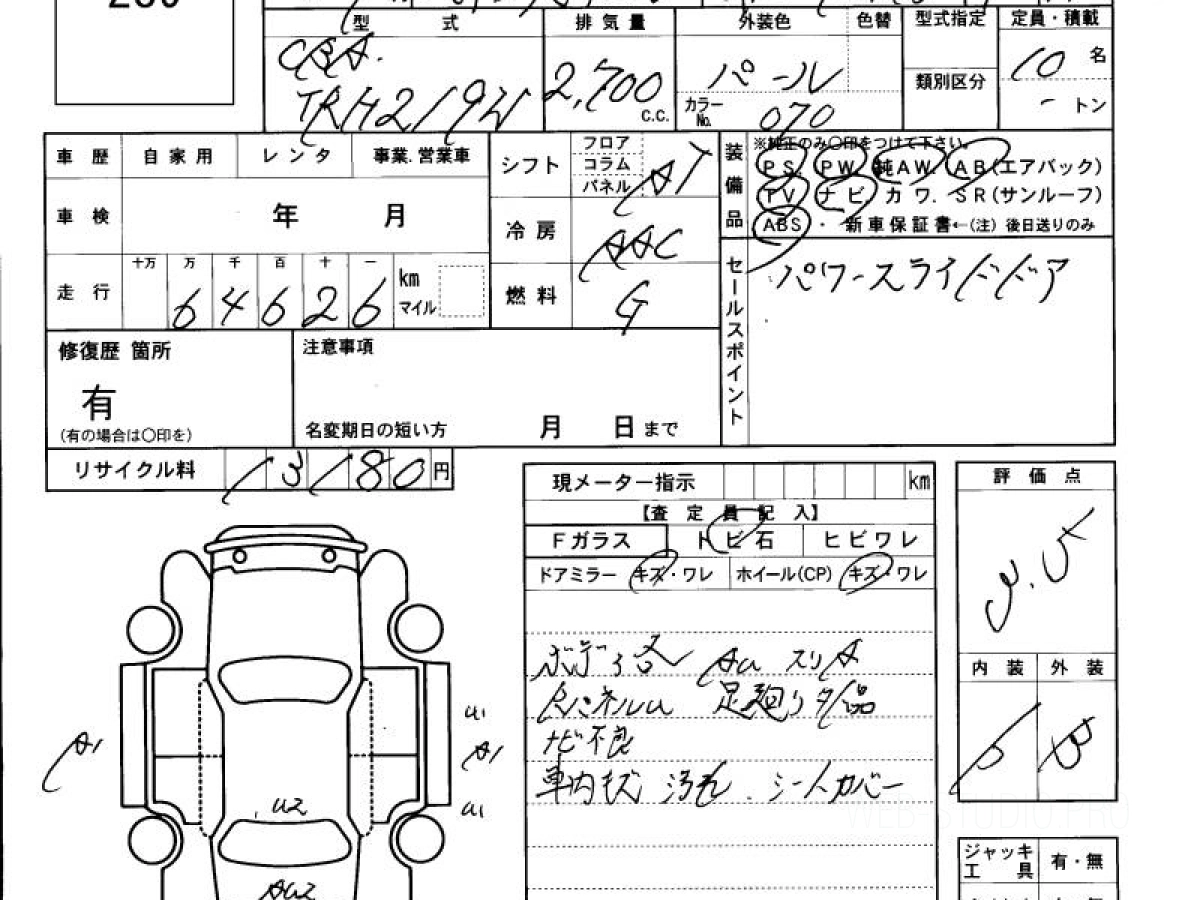 型 式 排気量 外装色 色替 型式指定 定員・積載
CBA.
TRH219W
2,700 C.C.
パール
カラーNo. 070
類別区分
10 名
- トン
車歴 自家用 レンタ 事業.営業車
シフト フロア コラム パネル AT
装備品
※純正のみ〇印をつけて下さい。
PS. PW. 純AW. AB(エアバック)
TV ナビ. カワ. SR(サンルーフ)
ABS ・ 新車保証書←(注) 後日送りのみ
車検 年 月
冷房 AAC
走行 十万 万 千 百 十 一
64626 km マイル
燃料 G
セールスポイント
パワースライドドア
修復歴 箇所
有
(有の場合は〇印を)
注意事項
名変期日の短い方 月 日まで
リサイクル料 13180 円
現メーター指示 km
【査定員記入】
Fガラス トビ石 ヒビワレ
ドアミラー キズ・ワレ ホイール(CP) キズ・ワレ
評価点
内装 外装
B
ボディ各 AU スリA
足廻りサビ
ナビ不良
車内キズ 汚れ . シートカバー
A1
U1
A1
U1
U2
AU2
ジャッキ 工具 有・無
WEB-STUDIO.PRO